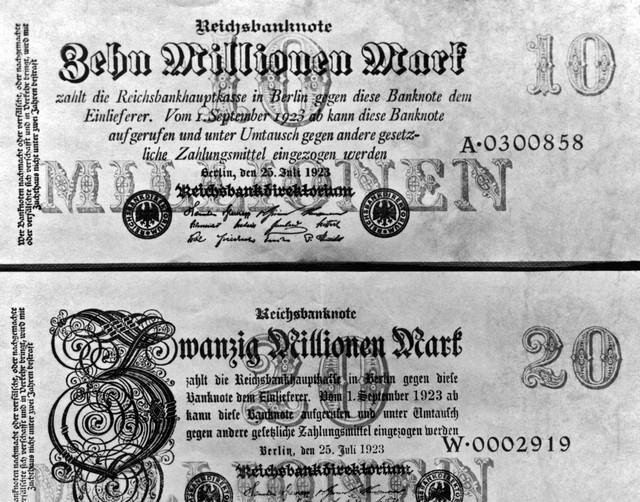 Reichsbanknote
Zehn Millionen Mark
10
10
zahlt die Reichsbankhauptkasse in Berlin gegen diese Banknote dem
Einlieferer. Vom 1. September 1923 ab kann diese Banknote
aufgerufen und unter Umtausch gegen andere gesetz-
liche Zahlungsmittel eingezogen werden
A·0300858
Berlin, den 25. Juli 1923
MILLIONEN
Reichsbankdirektorium
Wer Banknoten nachmacht oder verfälscht, oder nachgemachte
oder verfälschte sich verschafft und in Verkehr bringt, wird mit
Zuchthaus nicht unter zwei Jahren bestraft
Reichsbanknote
Zwanzig Millionen Mark
20
20
zahlt die Reichsbankhauptkasse in Berlin gegen diese
Banknote dem Einlieferer. Vom 1. September 1923 ab
kann diese Banknote aufgerufen und unter Umtausch
gegen andere gesetzliche Zahlungsmittel eingezogen werden
W·0002919
Berlin, den 25. Juli 1923
Reichsbankdirektorium
Banknoten nachmacht oder verfälscht, oder nachgemachte
oder verfälschte sich verschafft und in Verkehr bringt, wird mit
Zuchthaus nicht unter zwei Jahren bestraft